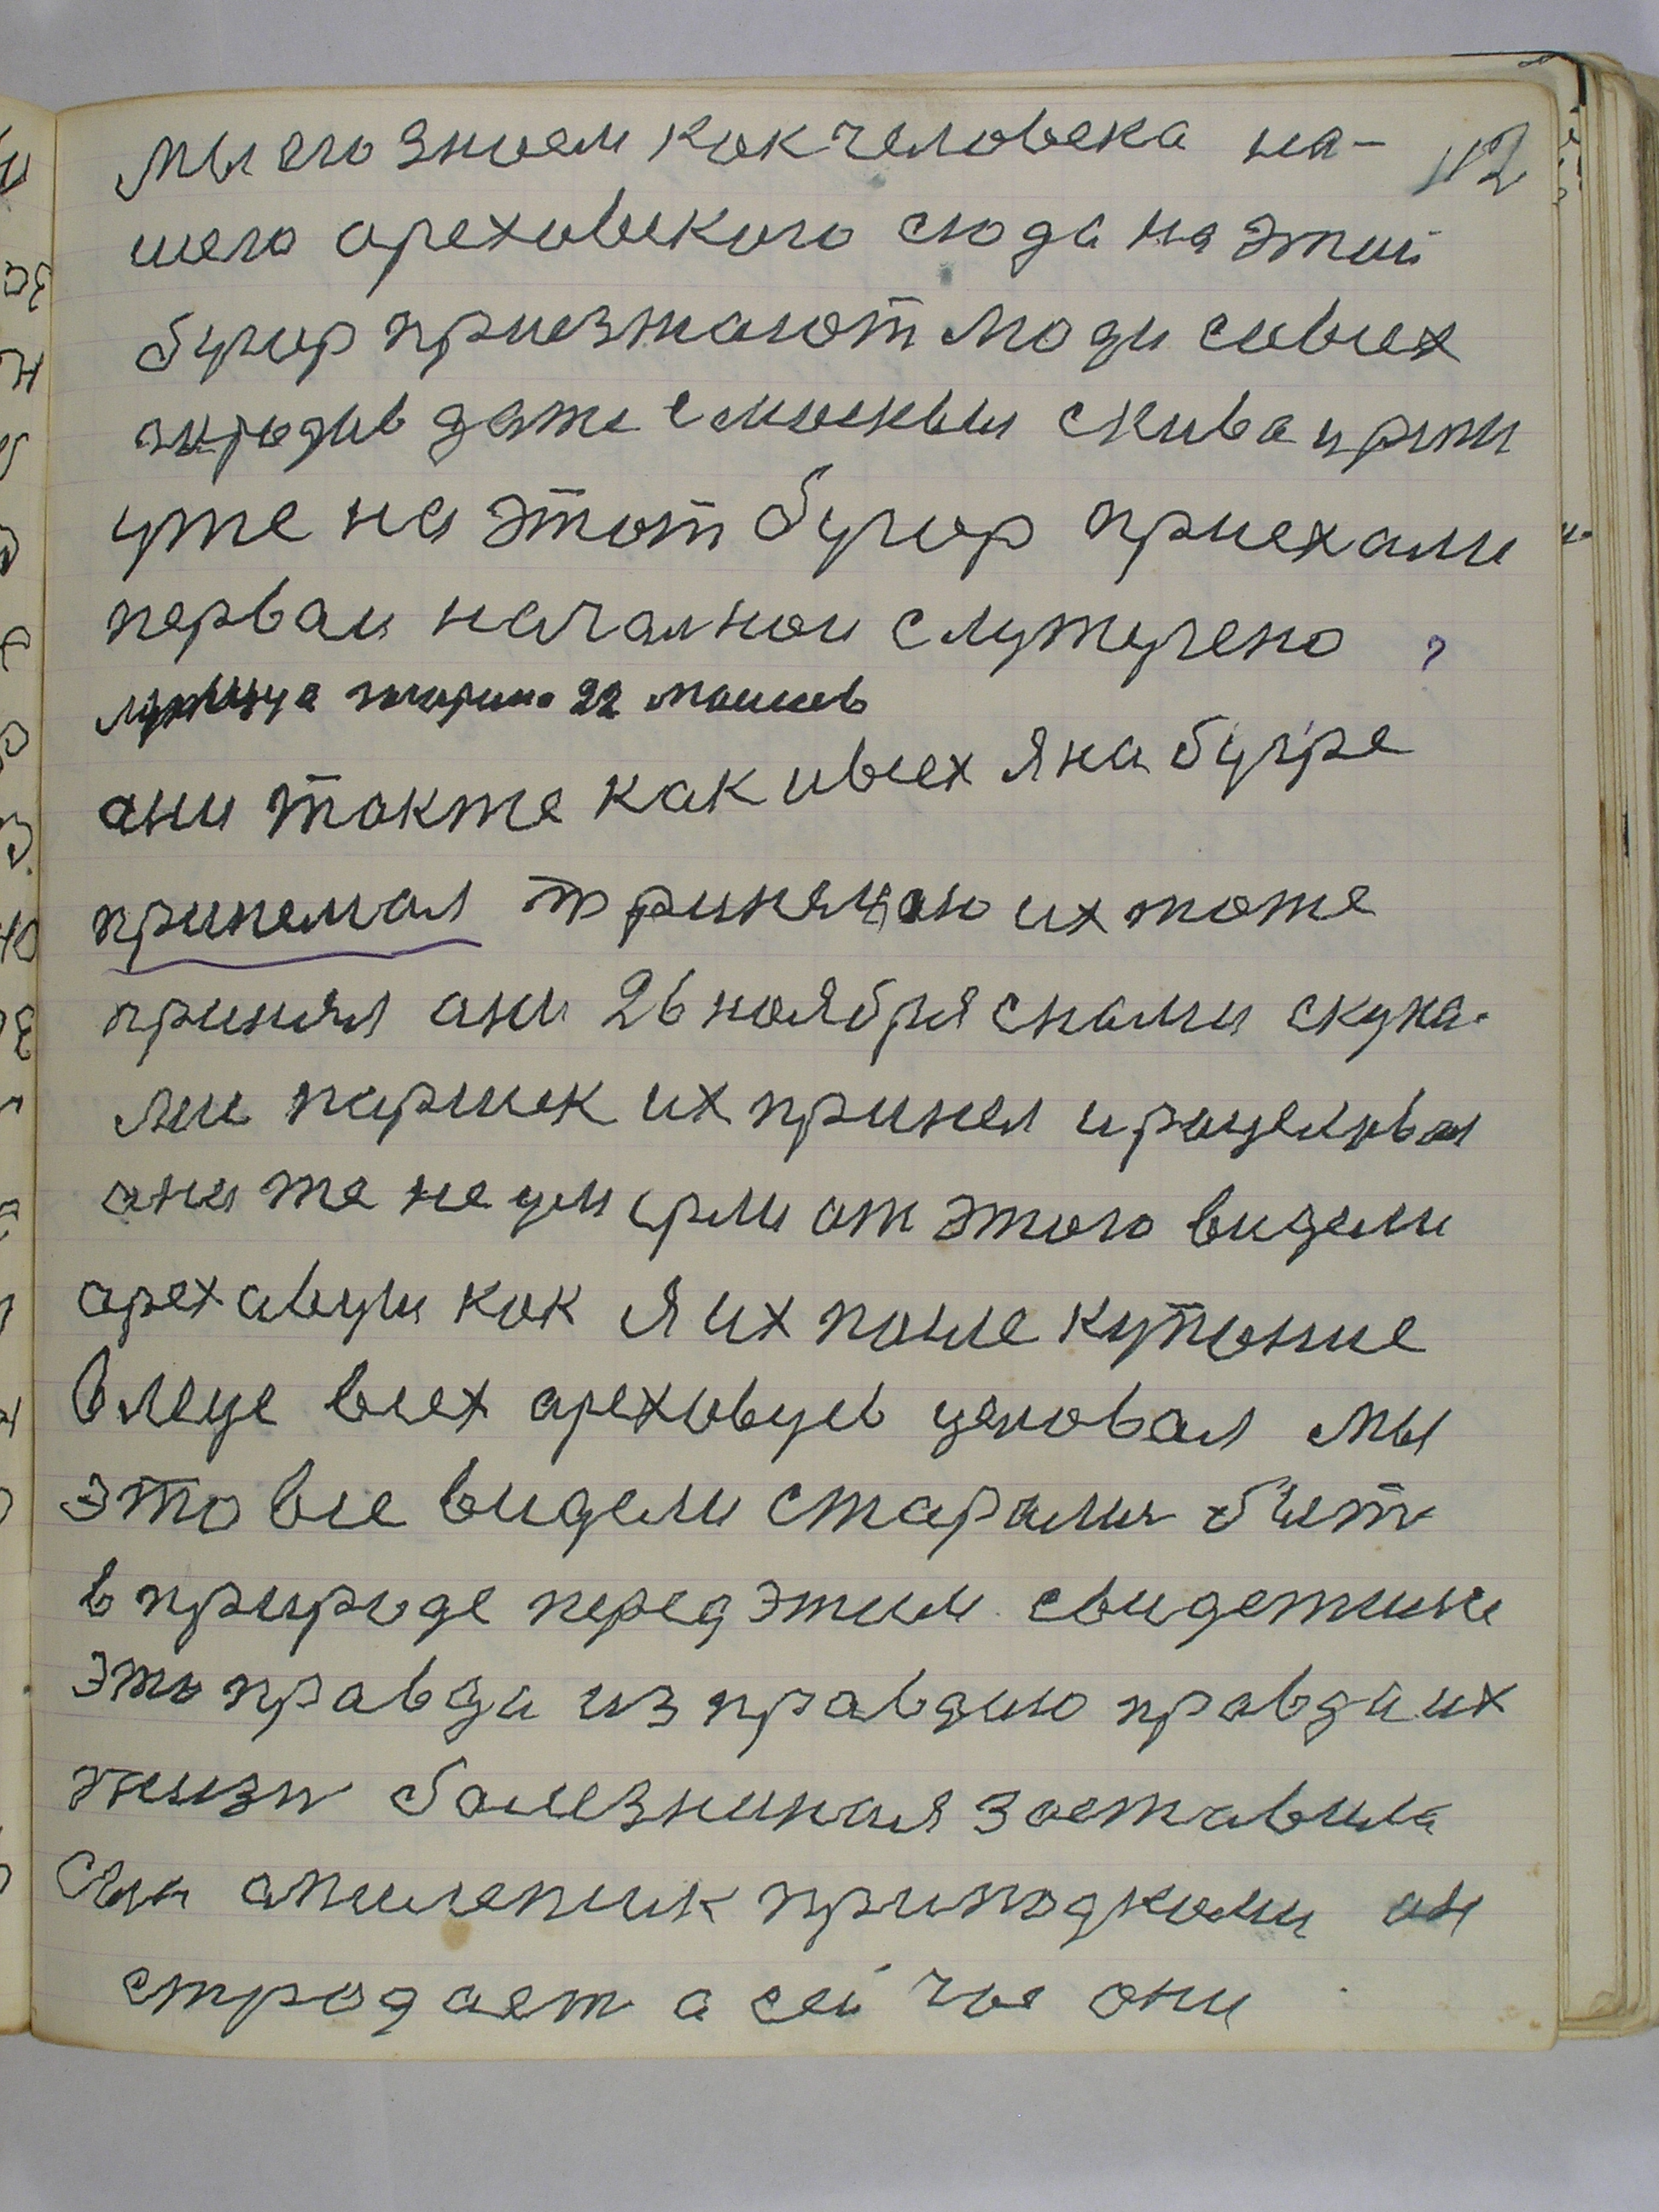 мы его знаем как человека на- 112
шего ореховского сюда на этои
бугор приезжают люди совсех
городов даже смосквы скиева
уже на этот бугор приехали
первои началнои
22
они также как ивсех я на бугре
принемал принемаю их тоже
принял они 26 ноября снами скупа-
лис паршек их принел ирацеловал
они же не умерли от этого видели
ореховци как я их после купание
влеце всех ореховцев целовал мы
это все видели старалис быт
вприроде перед этим свидетили
это правда из правдою правда их
жизн болезниная заставила
сын эпилептик припадками он
страдает а сеи час они